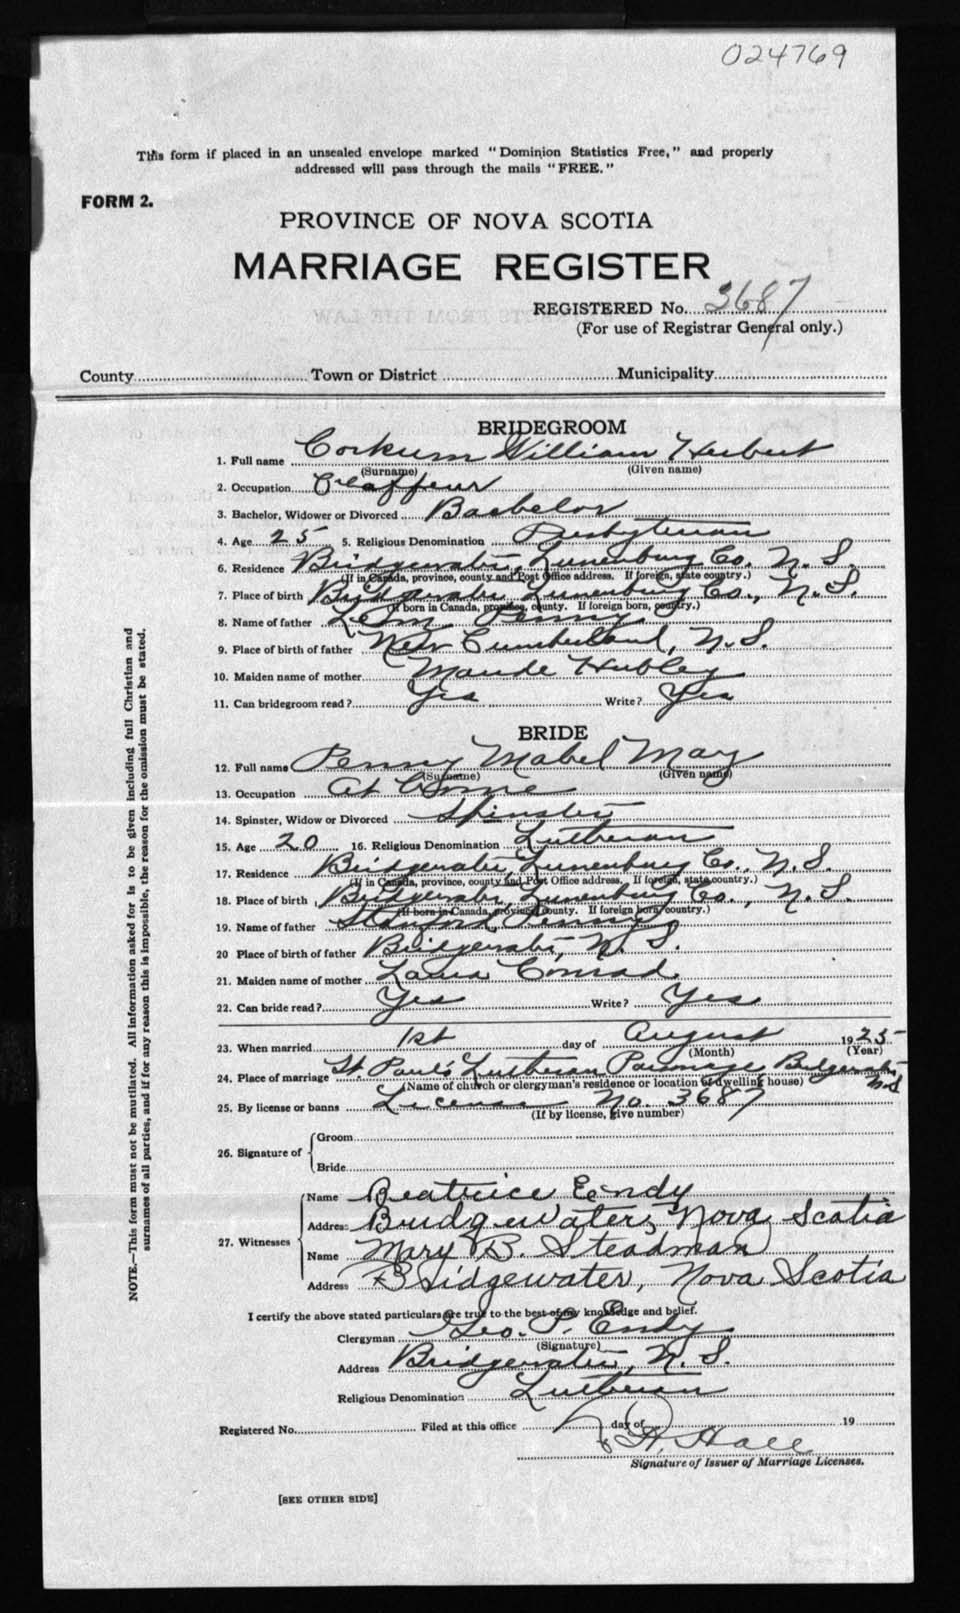 024769
This form if placed in an unsealed envelope marked "Dominion Statistics Free," and properly
addressed will pass through the mails "FREE."
FORM 2.
PROVINCE OF NOVA SCOTIA
MARRIAGE REGISTER
REGISTERED No. 3687
(For use of Registrar General only.)
County Town or District Municipality
BRIDEGROOM
1. Full name Corkum William Hubert
(Surname) (Given name)
2. Occupation
3. Bachelor, Widower or Divorced Bachelor
4. Age 25 5. Religious Denomination Presbyterian
6. Residence Bridgewater, Lunenburg Co. N. S.
(If in Canada, province, county and Post Office address. If foreign, state country.)
7. Place of birth Bridgewater Lunenburg Co., N. S.
(If born in Canada, province, county. If foreign born, country.)
8. Name of father Penny
9. Place of birth of father Cumberland, N. S.
10. Maiden name of mother Maude Hubley
11. Can bridegroom read? Yes Write? Yes
BRIDE
12. Full name Penny Mabel May
(Surname) (Given name)
13. Occupation At Home
14. Spinster, Widow or Divorced Spinster
15. Age 20 16. Religious Denomination Lutheran
17. Residence Bridgewater, Lunenburg Co., N. S.
(If in Canada, province, county and Post Office address. If foreign, state country.)
18. Place of birth Bridgewater, Lunenburg Co., N. S.
(If born in Canada, province, county. If foreign born, country.)
19. Name of father Stanford Penny
20 Place of birth of father Bridgewater, N. S.
21. Maiden name of mother Laura Conrad
22. Can bride read? Yes Write? Yes
23. When married 1st day of August 1925
(Month) (Year)
24. Place of marriage St. Paul's Lutheran Parsonage Bridgewater, N.S
(Name of church or clergyman's residence or location of dwelling house)
25. By license or banns License No. 3687
(If by license, give number)
26. Signature of
Groom
Bride
27. Witnesses
Name Beatrice Endy
Address Bridgewater, Nova Scotia
Name Mary B. Steadman
Address Bridgewater, Nova Scotia
I certify the above stated particulars are true to the best of my knowledge and belief.
Clergyman Geo. P. Endy
(Signature)
Address Bridgewater, N. S.
Religious Denomination Lutheran
Registered No. Filed at this office day of 19
H. Hall
Signature of Issuer of Marriage Licenses.
[SEE OTHER SIDE]
NOTE.—This form must not be mutilated. All information asked for is to be given including full Christian and
surnames of all parties, and if for any reason this is impossible, the reason for the omission must be stated.